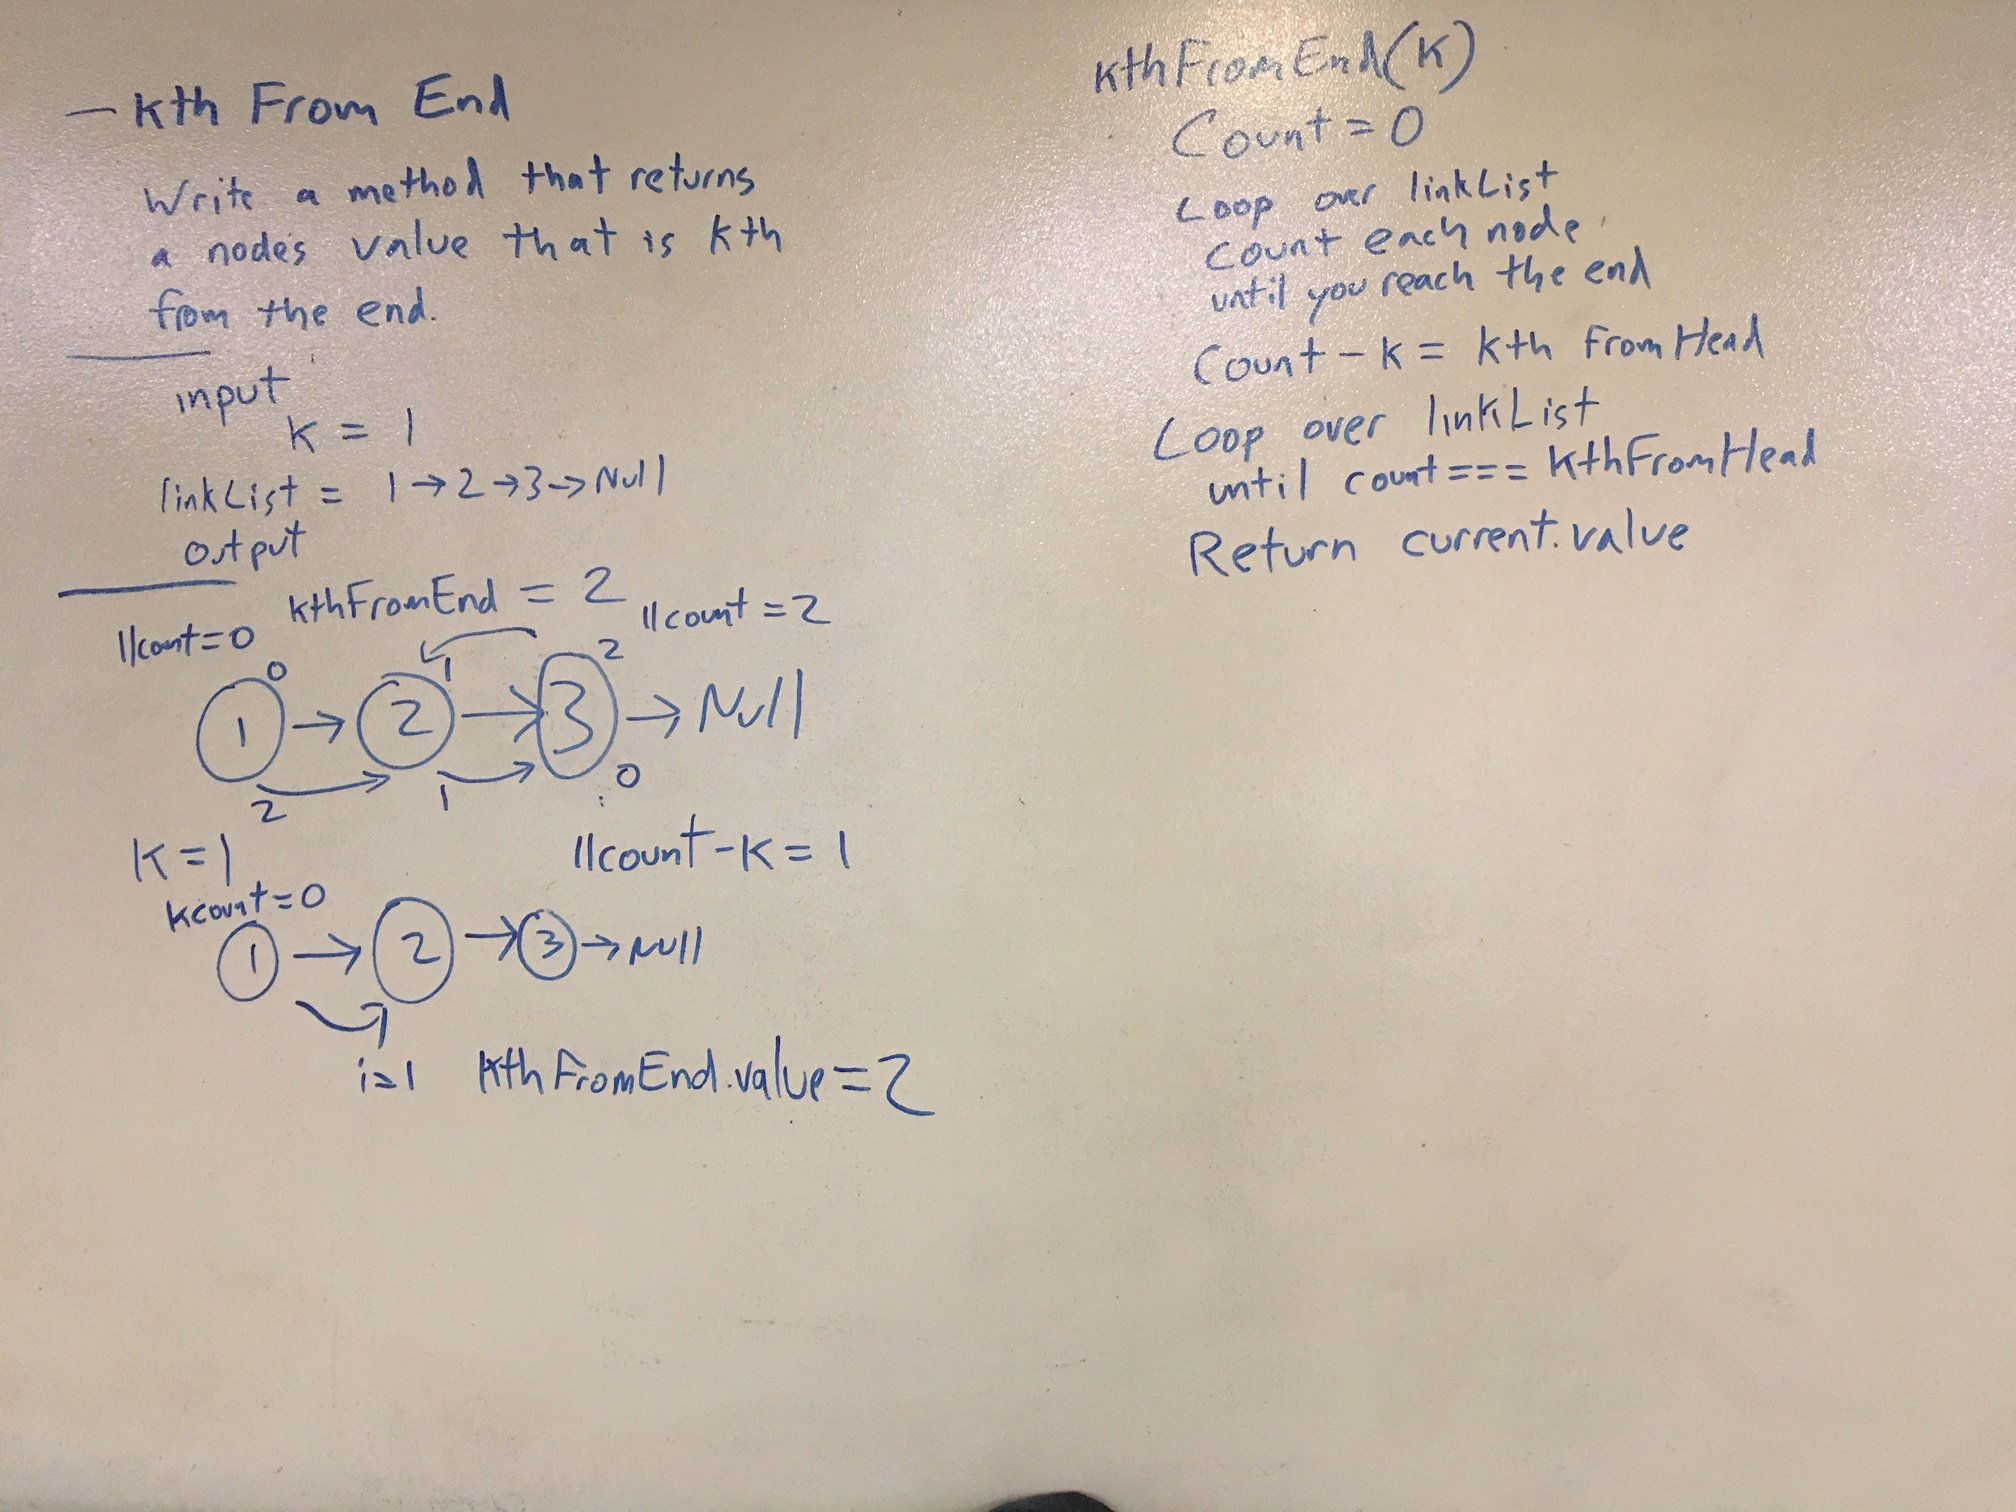 — Kth From End
Write a method that returns
a node's value that is kth
from the end.
input
K = 1
linkList = 1→2→3→Null
output
kthFromEnd = 2
llcount=0
llcount=2
0 1 2
1 → 2 → 3 → Null
2 1 0
K=1
llcount-K=1
kcount=0
1 → 2 → 3 → Null
i=1 kthFromEnd.value=2
kthFromEnd(K)
Count=0
Loop over linkList
count each node
until you reach the end
Count-K= kth FromHead
Loop over linkList
until count=== kthFromHead
Return current.value